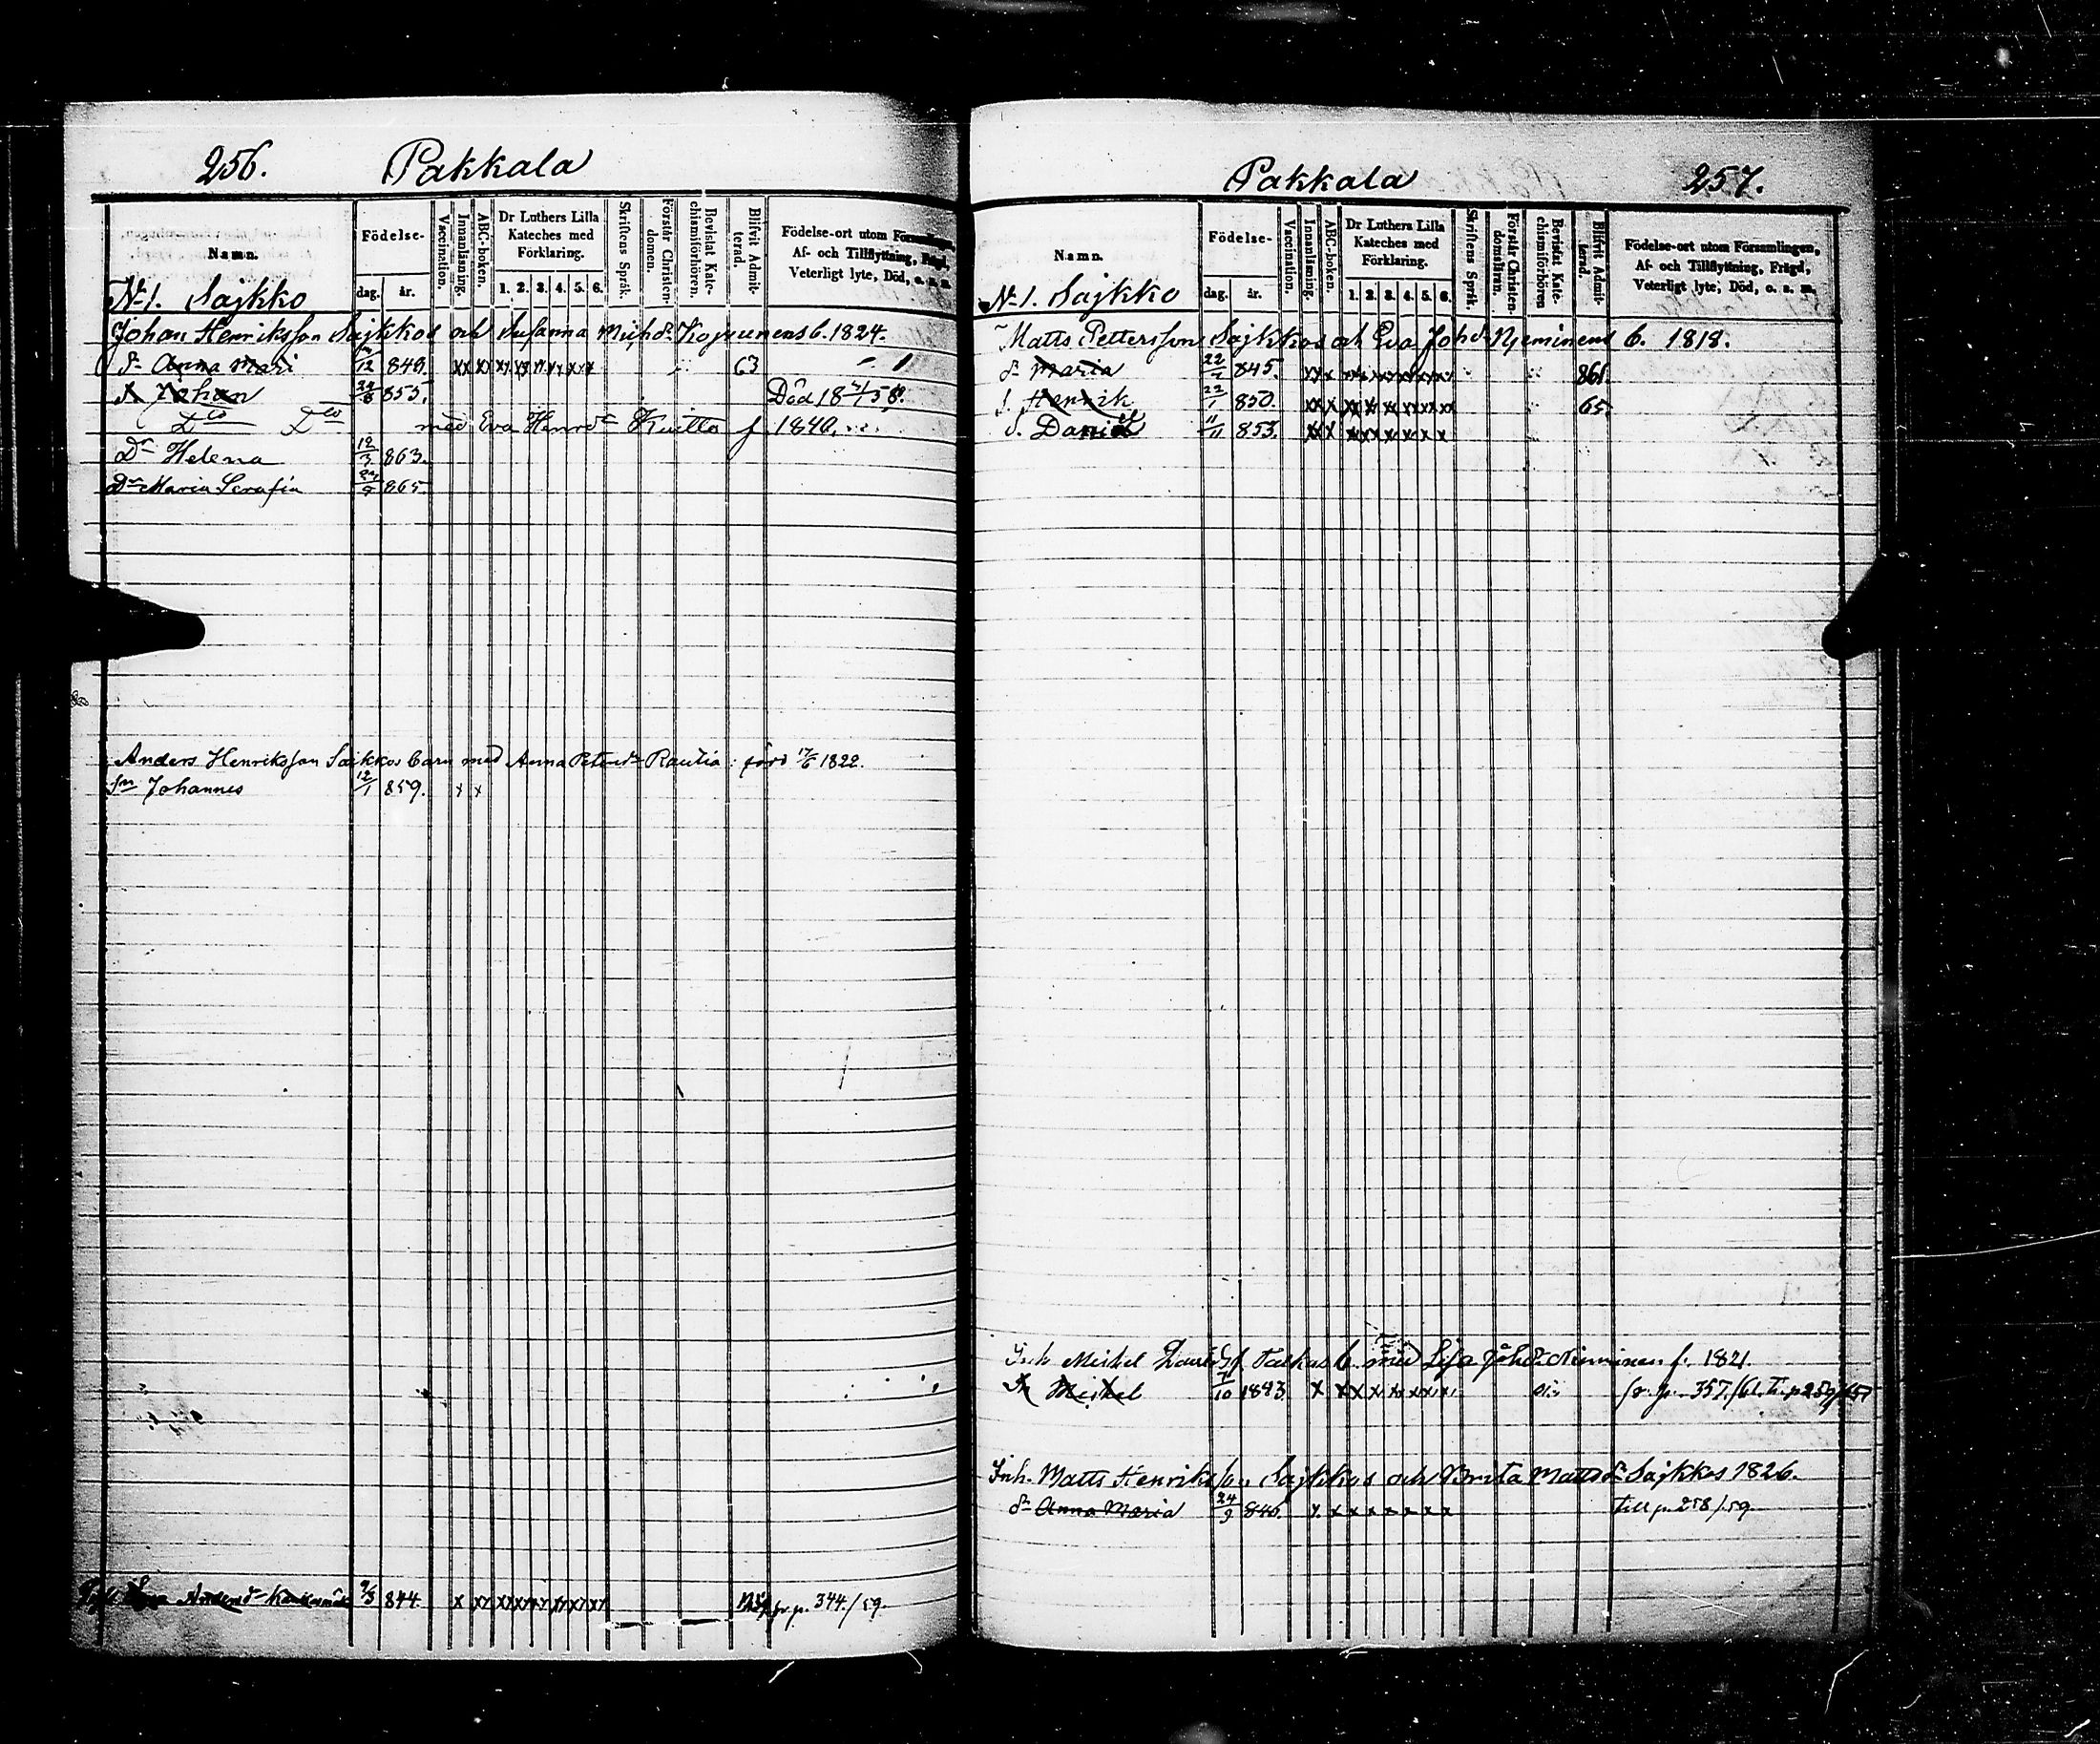 256. Pakkala
Namn. Födelse- dag. år. Vaccination. Innanläsning. ABC-boken. Dr Luthers Lilla Kateches med Förklaring. 1. 2. 3. 4. 5. 6. Skriftens Språk. Förstår Christendomen. Bevistat Katechismiförhören. Blifvit Admitterad. Födelse-ort utom Församlingen, Af- och Tillflyttning, Frägd, Veterligt lyte, Död, o. s. m.
No 1. Sajkko
Johan Henriksson Sajkkos och Susanna Mich dr b. 1824.
dr Anna Mari 12 846. xx xx xx xx xx xx xx 63
Johan 853. Död 58.
Do Do med Eva Henr dr Kuitto f. 1840.
Dr Helena 12/3 863.
Dr Maria Serafia 865.
Anders Henriksson Saikkos barn med Anna Peters dr Rautia född 17/6 1822.
sn Johannes 12/1 859. x x
Anders dr 9/3 844. x xx xx xx xx xx xx fr. p. 344./59.
Pakkala 257.
Namn. Födelse- dag. år. Vaccination. Innanläsning. ABC-boken. Dr Luthers Lilla Kateches med Förklaring. 1. 2. 3. 4. 5. 6. Skriftens Språk. Förstår Christendomsläran. Bevistat Katechismiförhören Blifvit Admitterad. Födelse-ort utom Församlingen, Af- och Tillflyttning, Frägd, Veterligt lyte, Död, o. s. m.
No 1. Sajkko
Matts Pettersson Sajkkos och Eva Joh dr Njeminens b. 1818.
dr Maria 845. xx x xx xx xx xx xx xx 861
s. Henrik 22/1 850. xx x xx xx xx xx xx xx 65
s. Daniel 11/11 853. xx x x x x x x x
Inh. Mickel b. med Lisa Joh dr Nieminen f. 1821.
Mickel 10 1843. x x x x x x x x fr. p. 357./61. t. p. 259/65
Inh. Matts Henriksson Sajkkos och Brita Matts dr Sajkkos 1826.
dr Anna Maria 24/9 846. x x x x x x x x till p. 258/59.